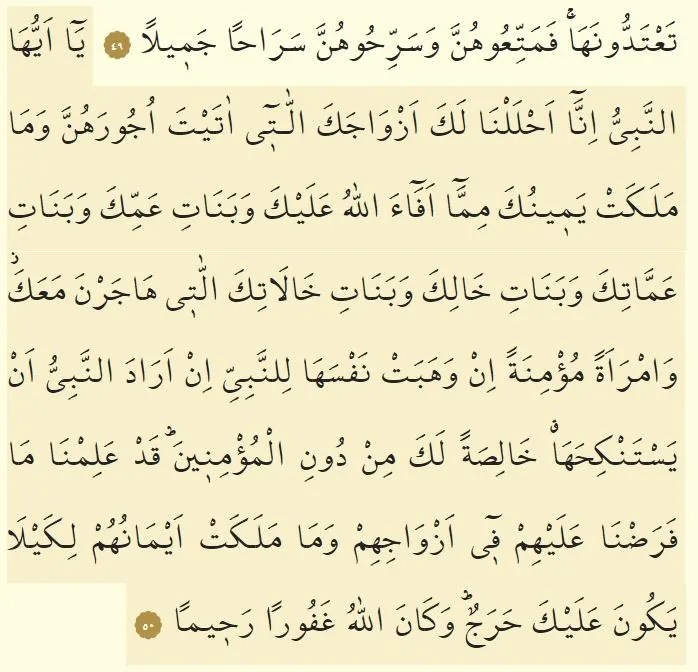 تَعْتَدُّونَهَاۚ فَمَتِّعُوهُنَّ وَسَرِّحُوهُنَّ سَرَاحًا جَم۪يلًا ٤٩ يَٓا اَيُّهَا
النَّبِيُّ اِنَّٓا اَحْلَلْنَا لَكَ اَزْوَاجَكَ الّٰت۪ٓي اٰتَيْتَ اُجُورَهُنَّ وَمَا
مَلَكَتْ يَم۪ينُكَ مِمَّٓا اَفَٓاءَ اللّٰهُ عَلَيْكَ وَبَنَاتِ عَمِّكَ وَبَنَاتِ
عَمَّاتِكَ وَبَنَاتِ خَالِكَ وَبَنَاتِ خَالَاتِكَ الّٰت۪ي هَاجَرْنَ مَعَكَۘ
وَامْرَاَةً مُؤْمِنَةً اِنْ وَهَبَتْ نَفْسَهَا لِلنَّبِيِّ اِنْ اَرَادَ النَّبِيُّ اَنْ
يَسْتَنْكِحَهَاۗ خَالِصَةً لَكَ مِنْ دُونِ الْمُؤْمِن۪ينَۜ قَدْ عَلِمْنَا مَا
فَرَضْنَا عَلَيْهِمْ ف۪ٓي اَزْوَاجِهِمْ وَمَا مَلَكَتْ اَيْمَانُهُمْ لِكَيْلَا
يَكُونَ عَلَيْكَ حَرَجٌۜ وَكَانَ اللّٰهُ غَفُورًا رَح۪يمًا ٥٠